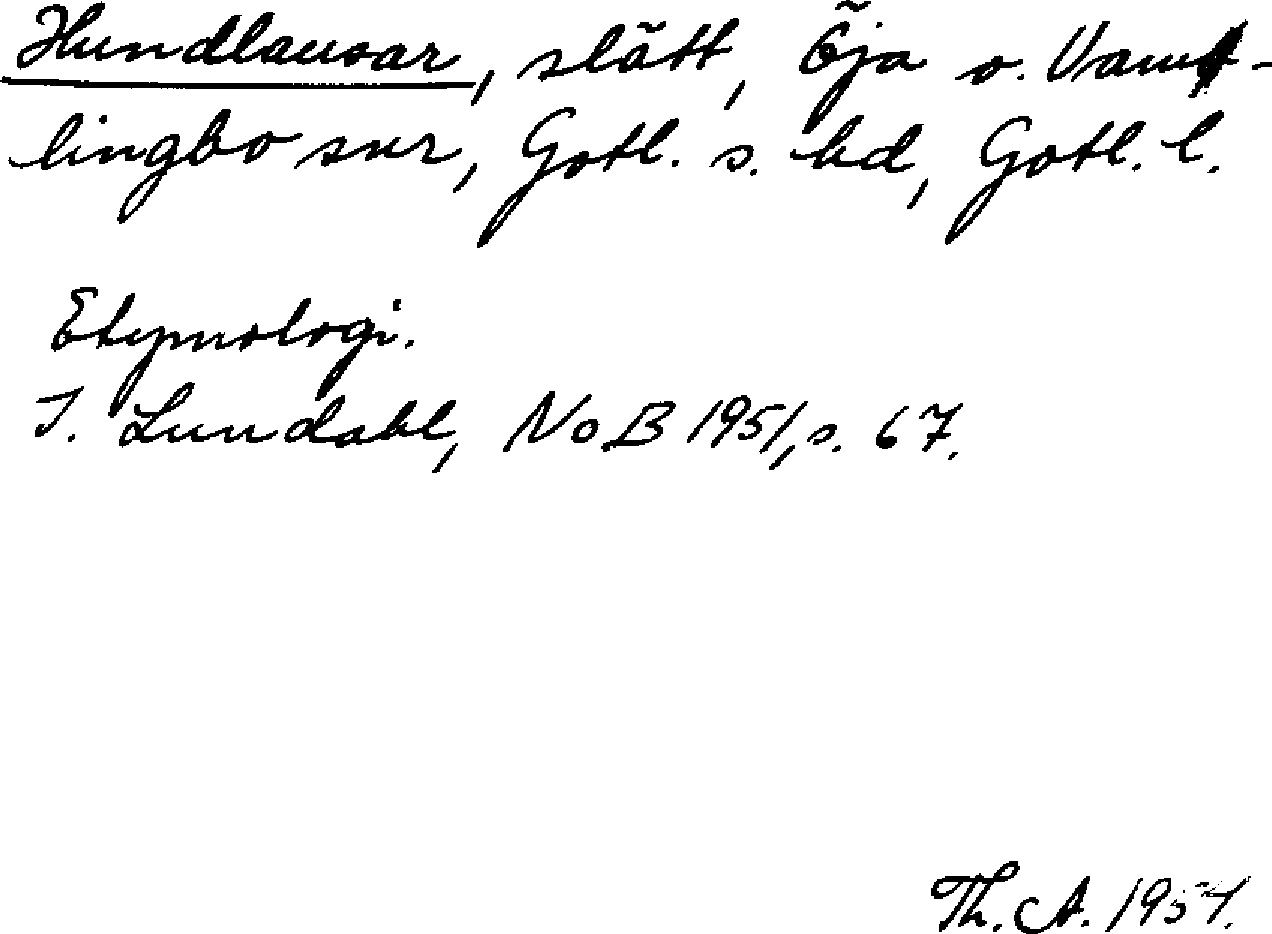 Hundlausar, slätt, Öja o. Vamt-
lingbo snr, Gotl. s. hd, Gotl. l.
Etymologi.
I. Lundahl, NoB 1951, s. 67.
Th. A. 1954.